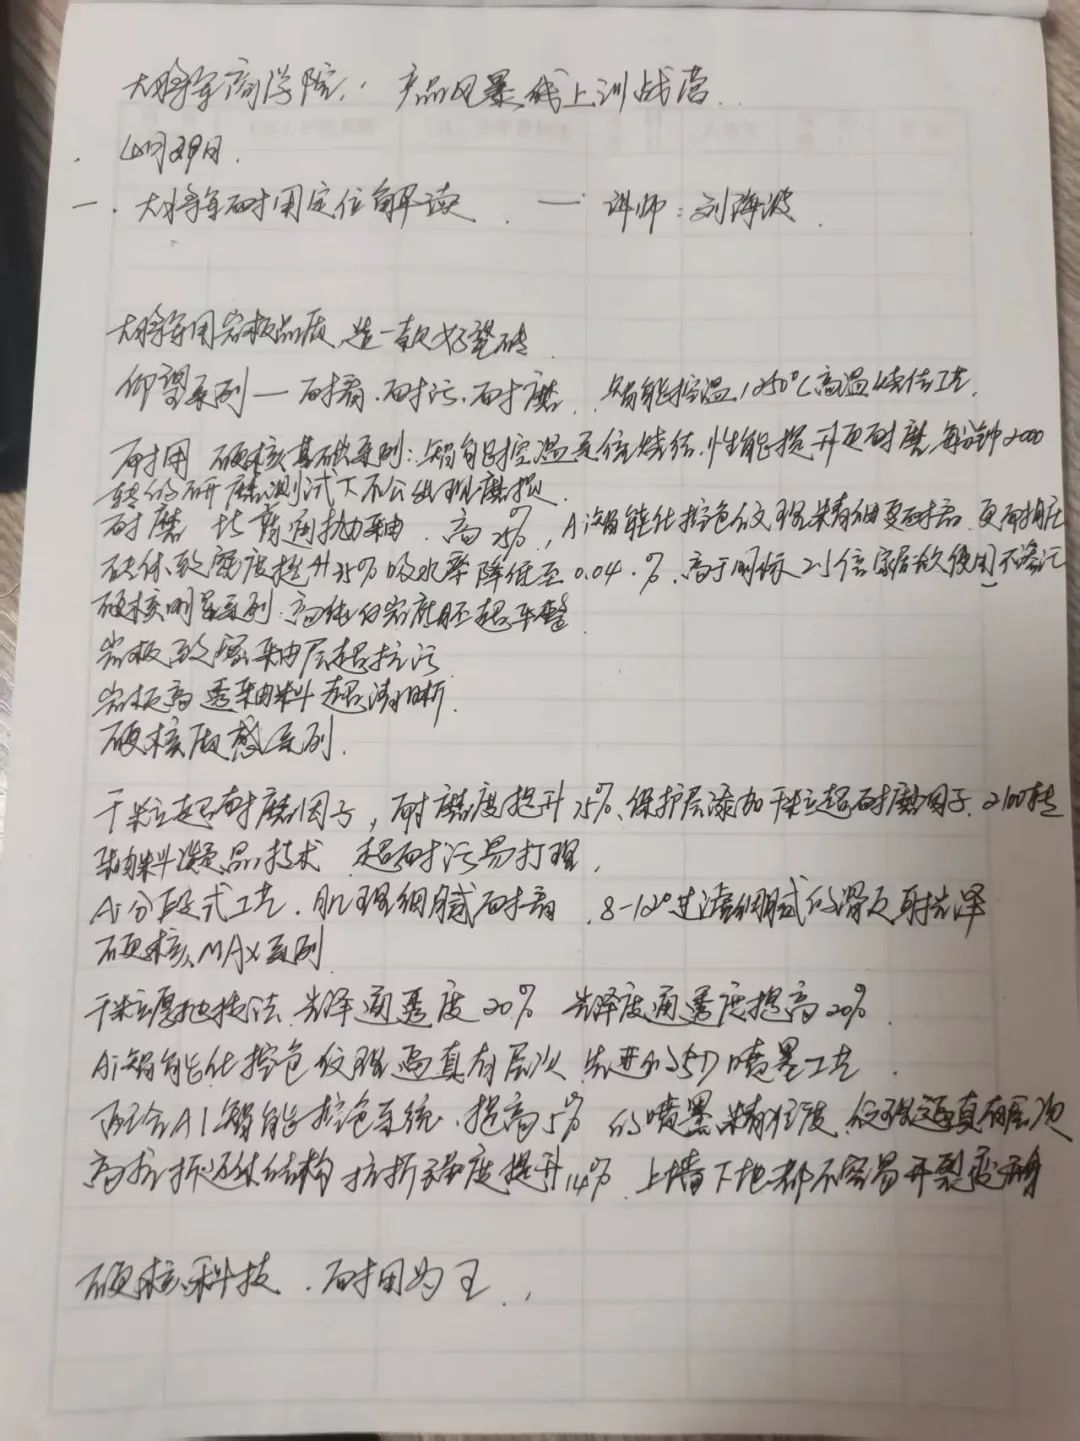 大将军商学院，产品风暴线上训战营.
4月 日.
一. 大将军耐用定位解读. — 讲师：刘海波.
大将军用岩板品质,造一款好瓷砖
仰望系列—耐看.耐污.耐磨. 智能控温.1250℃高温烧结工艺.
耐用 硬核基础系列：智能控温 烧结.性能提升更耐磨.每分钟2000
转的研磨测试下不会出现磨损.
耐磨 比普通抛釉.高25%,Ai智能化控色纹理精细更耐看.更耐
砖体致密度提升35%吸水率降低至0.04.%.高于国标2.5倍 使用不渗污
硬核明星系列.高纯白岩底胚超平整
岩板致密釉层超抗污
岩板高透釉料 超清晰.
硬核质感系列.
干粒超耐磨因子，耐磨度提升25%、保护层添加干粒超耐磨因子.2100转
釉料 晶技术 超耐污易打理,
Ai分段式工艺.肌理细腻耐看.8-12° 细腻 光泽
硬核MAX系列
干粒厚抛技法.光泽通透度20% 光泽度通透度提高20%.
Ai智能化控色纹理逼真有层次 先进的 5D喷墨工艺.
配合AI智能控色系统.提高5%的喷墨精准度.纹理逼真有层次
高抗折 体结构 抗折强度提升14%.上墙下地都不容易开裂变形
硬核科技.耐用为王.,